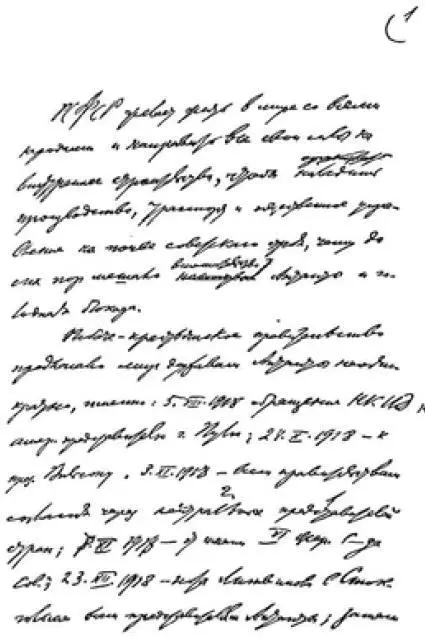 1
РСФСР желает жить в мире со всеми
народами и направить все свои силы на
внутреннее строительство, чтобы наладить
производство, транспорт и общественное управ-
ление на почве советского строя, чему до
сих пор мешало вмешательство Антанты и го-
лодная блокада.
Рабоче-крестьянское правительство
предлагало мир державам Антанты неодно-
кратно, именно: 5.VIII.1918 обращение НКИД к
амер. представителю г. Пулю; 24.X.1918 – к
през. Вильсону. 3.XI.1918 – всем правительствам
согласия через нейтральных представителей
стран; 7.XI 1918 – от имени VI Всер. с-да
Сов.; 23.XII.1918 – нота Литвинова в Сток-
гольме всем представителям Антанты; затем